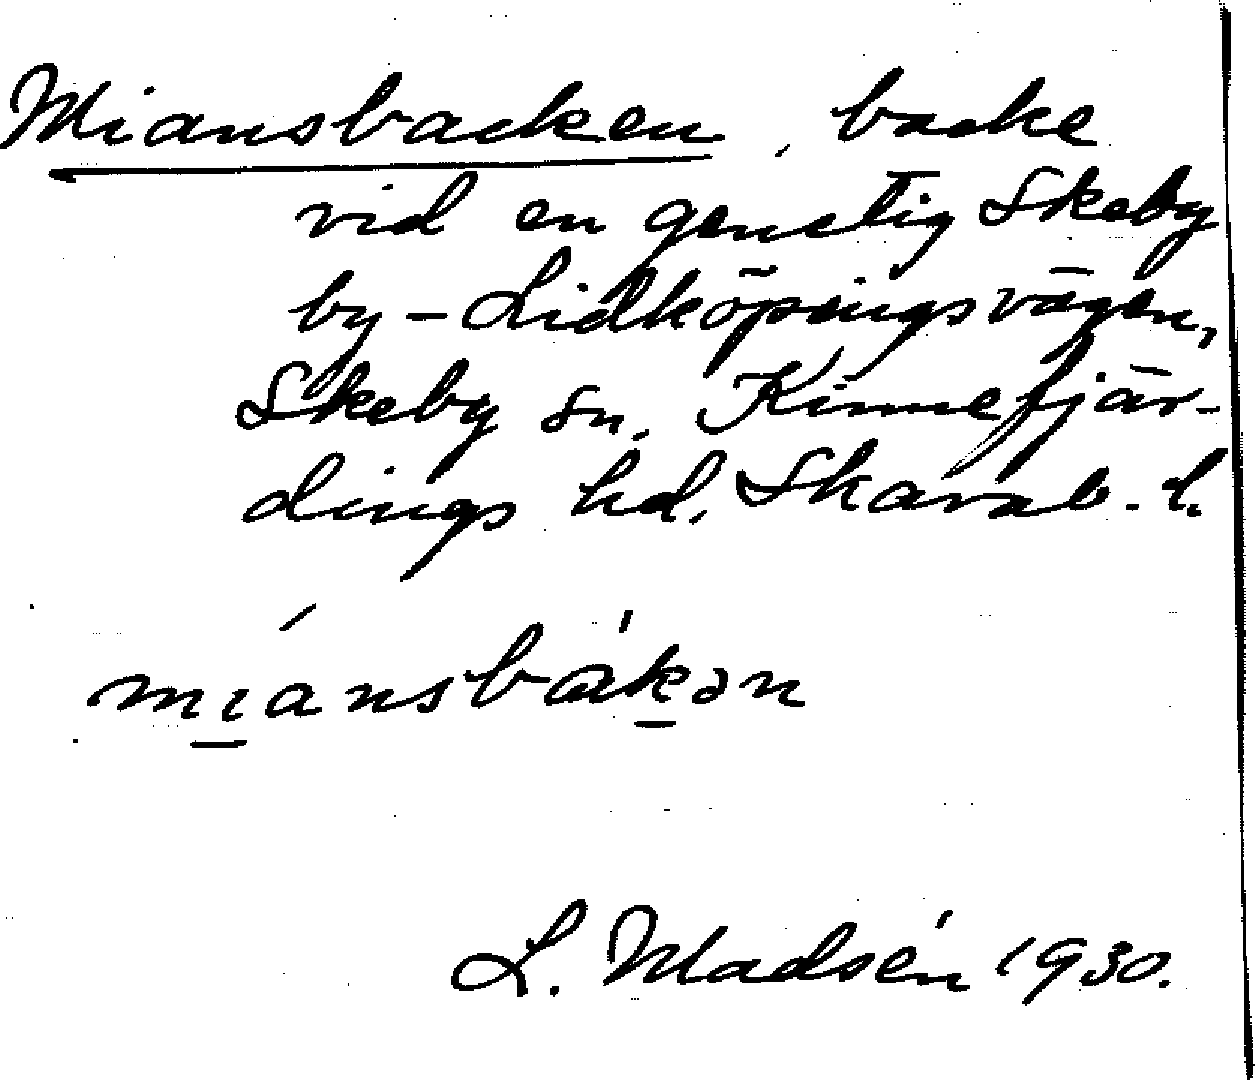 Miansbacken, backe
vid en genstig Skeby
by - Lidköpingsvägen,
Skeby sn, Kinnefjär-
dings hd, Skarab. l.
mıánsbákən
L. Madsén 1930.